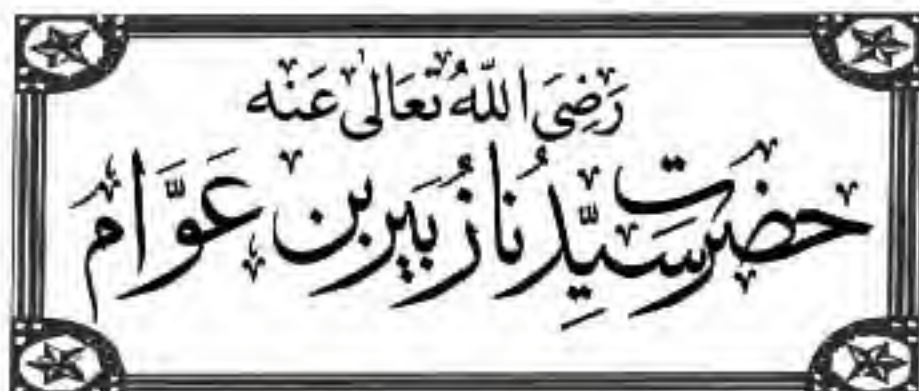 رَضِیَ اللّٰهُ تَعَالٰی عَنْه
حضرت سَیِّدُنا زُبَیر بن عَوَّام